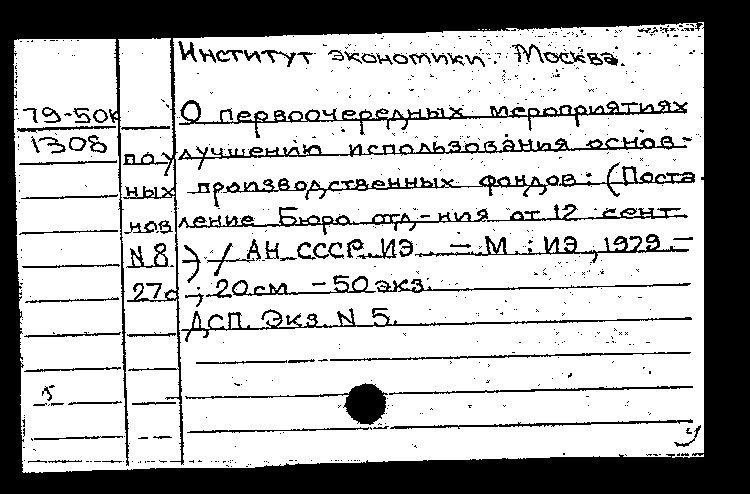 Институт экономики. Москва.
79-50к
1308
О первоочередных мероприятиях
по улучшению использования основ-
ных производственных фондов: (Поста-
новление Бюро отд-ния от 12 сент.
N 8) / АН СССР. ИЭ. — М.: ИЭ, 1979. —
27с.; 20 см. — 50 экз.
ДСП. Экз. N 5.